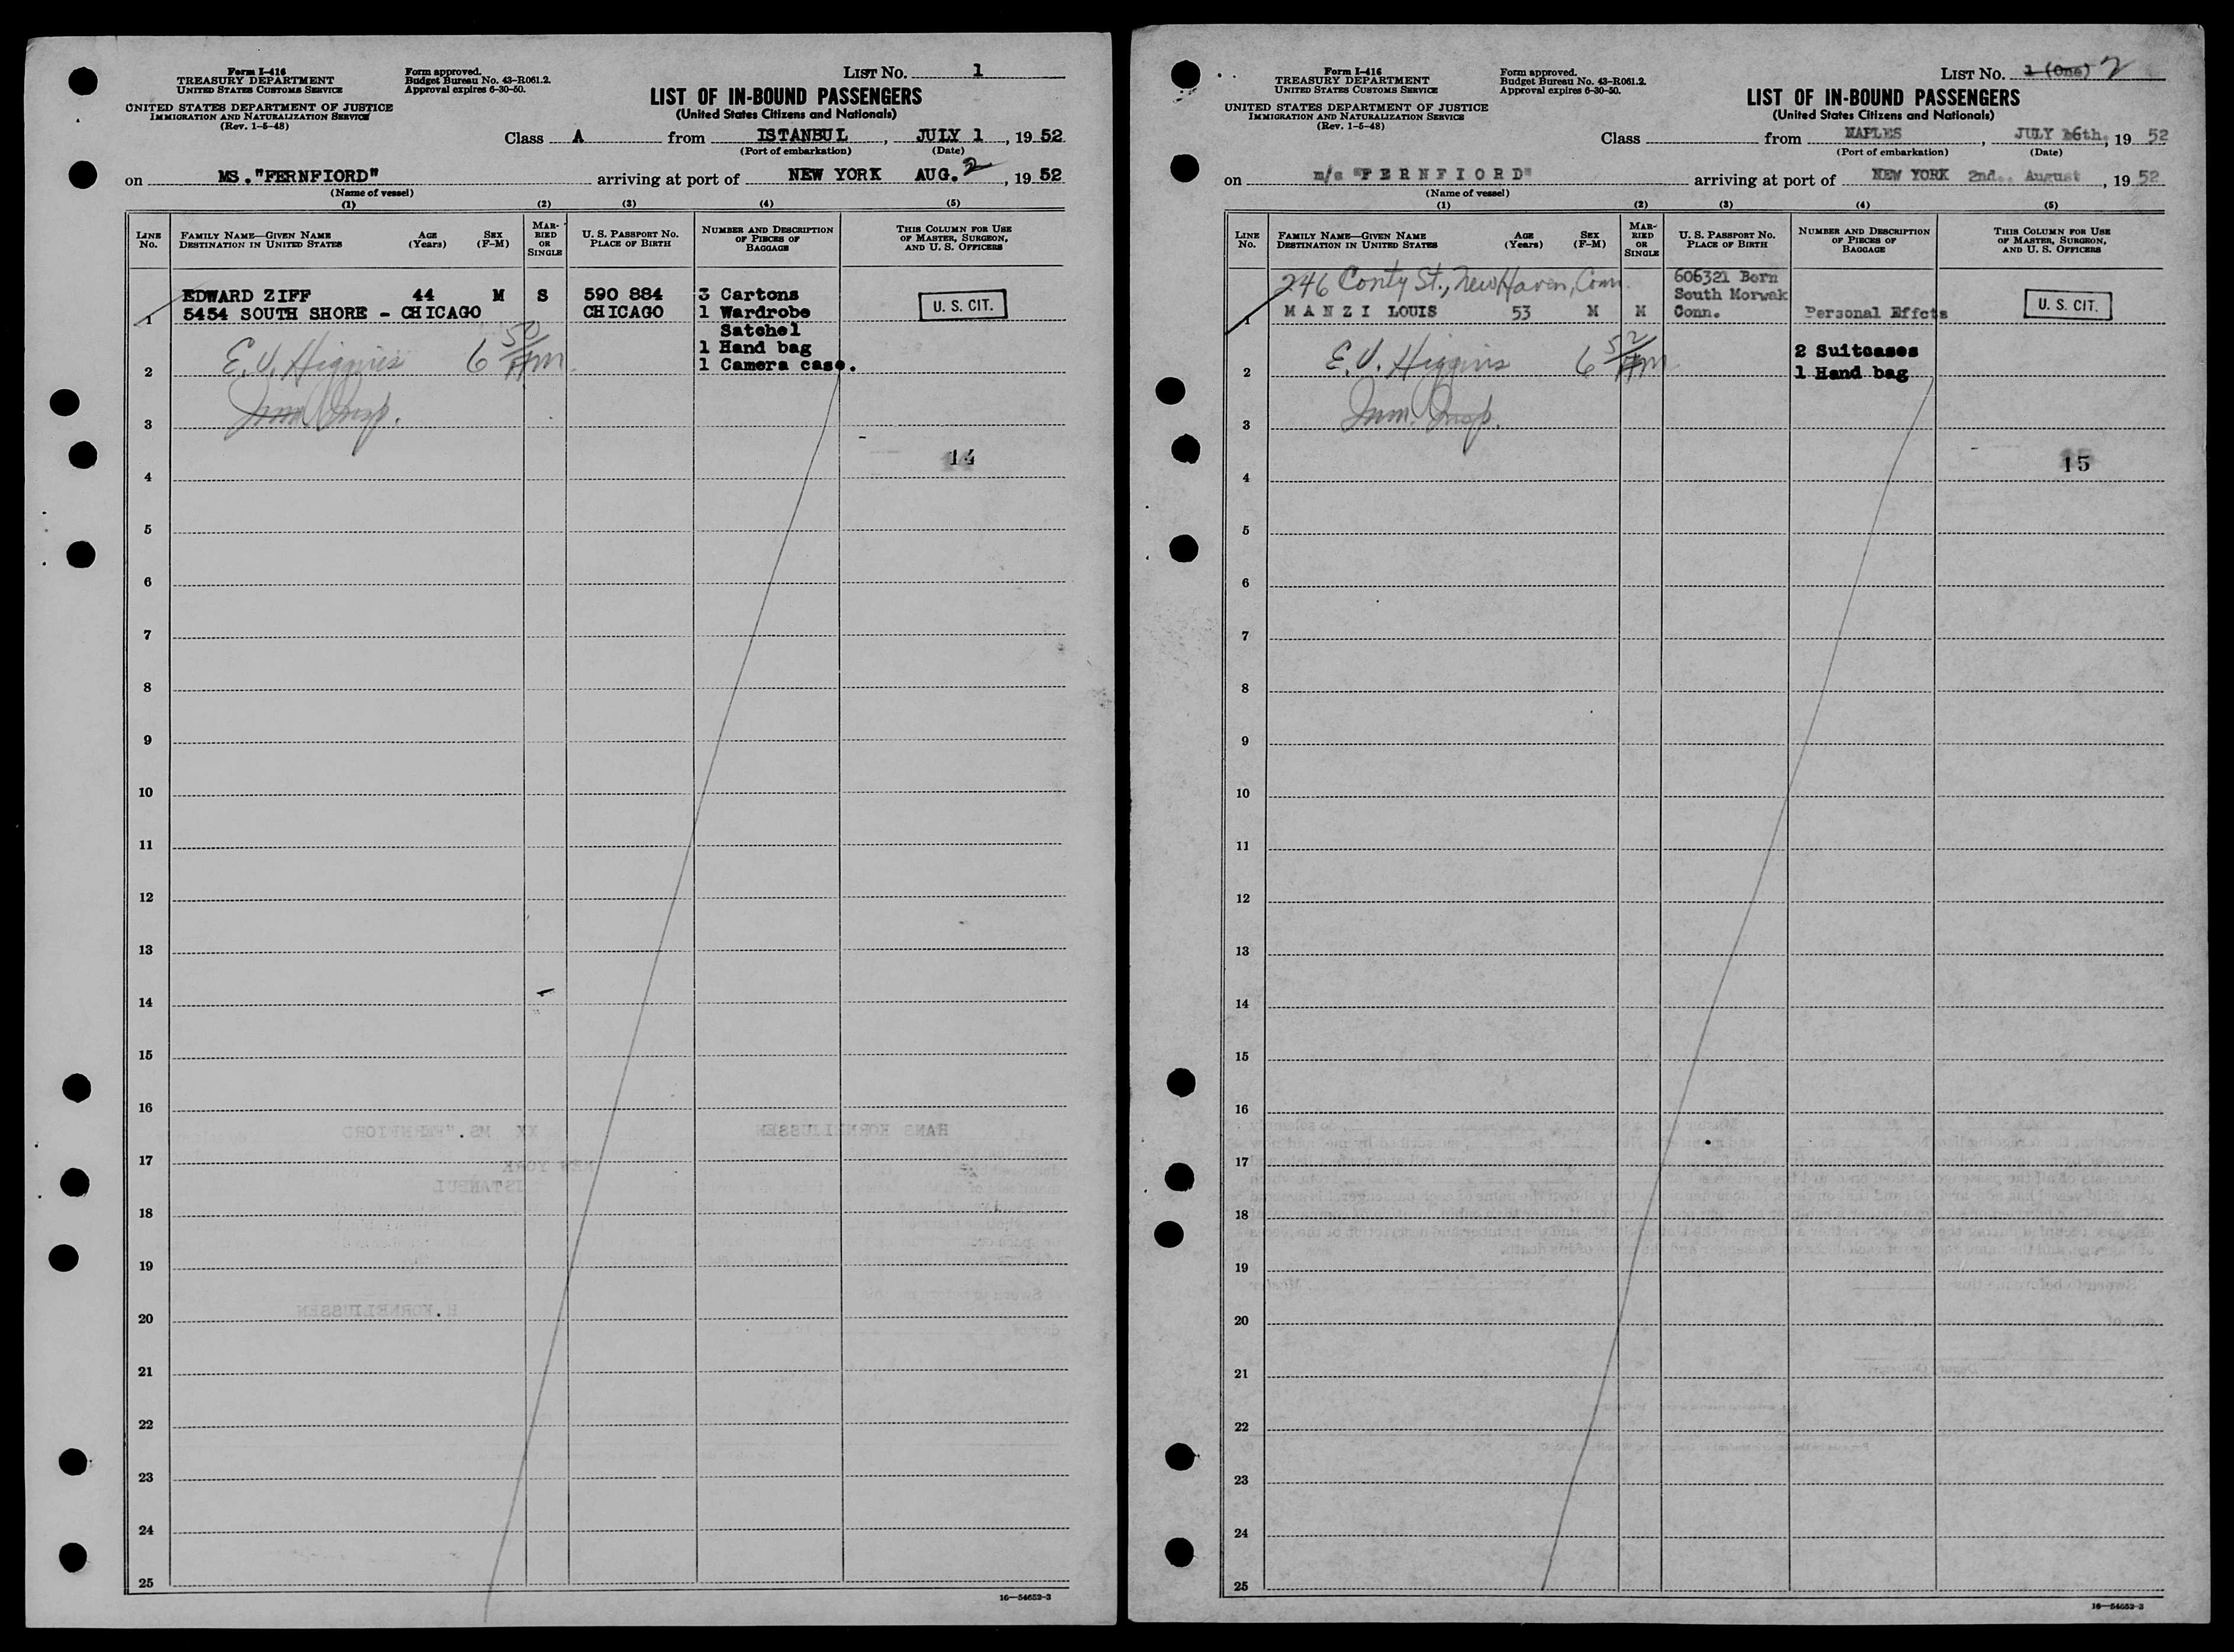 Form I-416
TREASURY DEPARTMENT
UNITED STATES CUSTOMS SERVICE
UNITED STATES DEPARTMENT OF JUSTICE
IMMIGRATION AND NATURALIZATION SERVICE
(Rev. 1-5-48)
Form approved.
Budget Bureau No. 43-R061.2.
Approval expires 6-30-50.
LIST No. 1
LIST OF IN-BOUND PASSENGERS
(United States Citizens and Nationals)
Class A from ISTANBUL, JULY 1, 1952
(Port of embarkation) (Date)
on MS."FERNFIORD" arriving at port of NEW YORK AUG. 2, 1952
(Name of vessel)
(1) (2) (3) (4) (5)
LINE No.
FAMILY NAME—GIVEN NAME
DESTINATION IN UNITED STATES
AGE (Years)
SEX (F-M)
MARRIED OR SINGLE
U. S. PASSPORT NO.
PLACE OF BIRTH
NUMBER AND DESCRIPTION OF PIECES OF BAGGAGE
THIS COLUMN FOR USE OF MASTER, SURGEON, AND U. S. OFFICERS
EDWARD ZIFF 44 M S 590 884 3 Cartons
1 5454 SOUTH SHORE - CHICAGO CHICAGO 1 Wardrobe U. S. CIT.
Satchel
1 Hand bag
2 E. V. Higgins 6 50 PM 1 Camera case.
3 Imm Insp.
14
4
5
6
7
8
9
10
11
12
13
14
15
16
17
18
19
20
21
22
23
24
25
16—54652-3
Form I-416
TREASURY DEPARTMENT
UNITED STATES CUSTOMS SERVICE
UNITED STATES DEPARTMENT OF JUSTICE
IMMIGRATION AND NATURALIZATION SERVICE
(Rev. 1-5-48)
Form approved.
Budget Bureau No. 43-R061.2.
Approval expires 6-30-50.
LIST No. 1 (One) 2
LIST OF IN-BOUND PASSENGERS
(United States Citizens and Nationals)
Class from NAPLES, JULY 16th, 1952
(Port of embarkation) (Date)
on m/s "FERNFIORD" arriving at port of NEW YORK 2nd. August, 1952
(Name of vessel)
(1) (2) (3) (4) (5)
LINE No.
FAMILY NAME—GIVEN NAME
DESTINATION IN UNITED STATES
AGE (Years)
SEX (F-M)
MARRIED OR SINGLE
U. S. PASSPORT NO.
PLACE OF BIRTH
NUMBER AND DESCRIPTION OF PIECES OF BAGGAGE
THIS COLUMN FOR USE OF MASTER, SURGEON, AND U. S. OFFICERS
246 Conty St., New Haven, Conn. 606321 Born
South Morwak
1 MANZI LOUIS 53 M M Conn. Personal Effcts U. S. CIT.
2 Suitcases
2 E. V. Higgins 6 52 PM 1 Hand bag
3 Imm. Insp.
15
4
5
6
7
8
9
10
11
12
13
14
15
16
17
18
19
20
21
22
23
24
25
16—54652-3